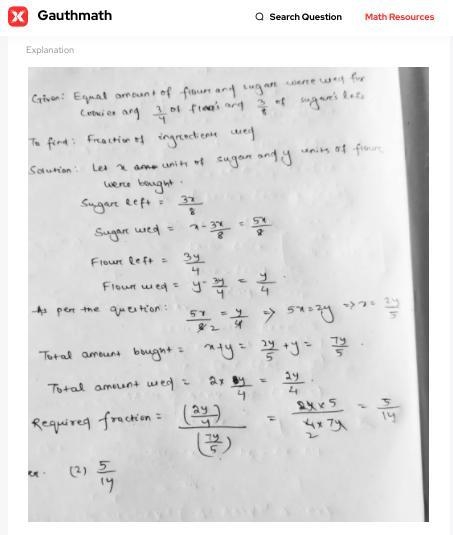 Gauthmath
Search Question
Math Resources
Explanation
Given: Equal amount of flour and sugar were used for
cookies and 3/4 of flour and 3/8 of sugar's left
To find: Fraction of ingredients used
Solution: Let x units of sugar and y units of flour
were bought.
Sugar left = 3x/8
Sugar used = x - 3x/8 = 5x/8
Flour left = 3y/4
Flour used = y - 3y/4 = y/4.
As per the question: 5x/8 2 = y/4 => 5x = 2y => x = 2y/5
Total amount bought = x + y = 2y/5 + y = 7y/5.
Total amount used = 2 x y/4 = 2y/4.
Required fraction = (2y/4)/(7y/5) = 2y x 5/4 x 7y 2 = 5/14
(2) 5/14